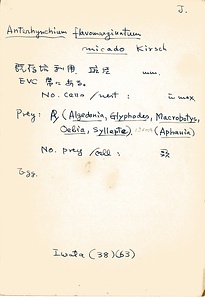 J.
Anterhynchium flavomarginatum
micado Kirsch
既存坑利用.
mm.
EVC 第二ある.
No. cells / nest : in max
Prey: (Algedonia, Glyphodes, Macrobotys,
Oebia, Syllepta). (Aphania)
No. prey / cell : 頭
Egg.
Iwata (38) (63)